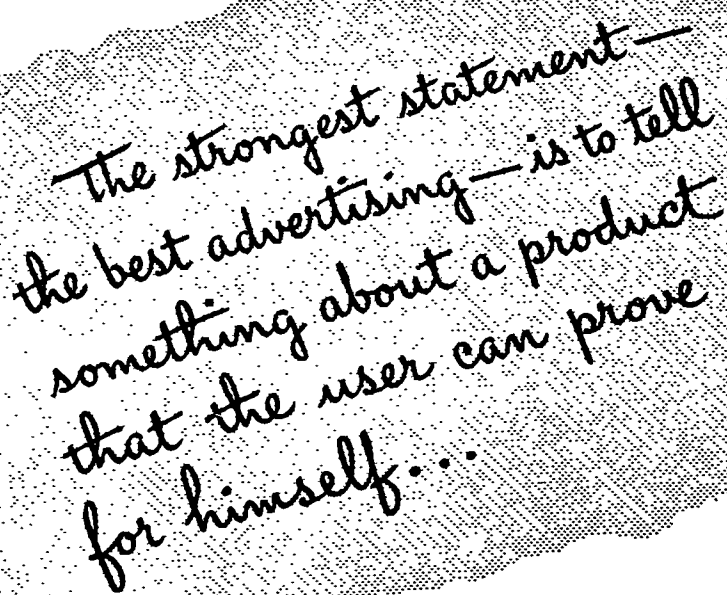 The strongest statement—
the best advertising—is to tell
something about a product
that the user can prove
for himself...